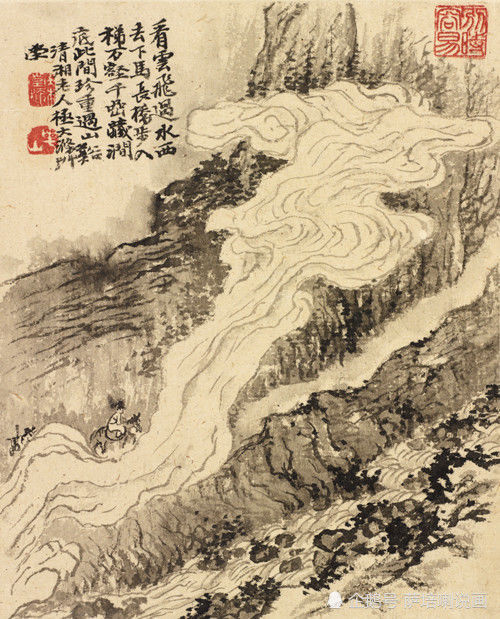 看雲飛過水西
去下馬長橋步入
梯万壑千巒藏澗
底此間珍重過山谿
清湘老人極大滌
堂
企鹅号